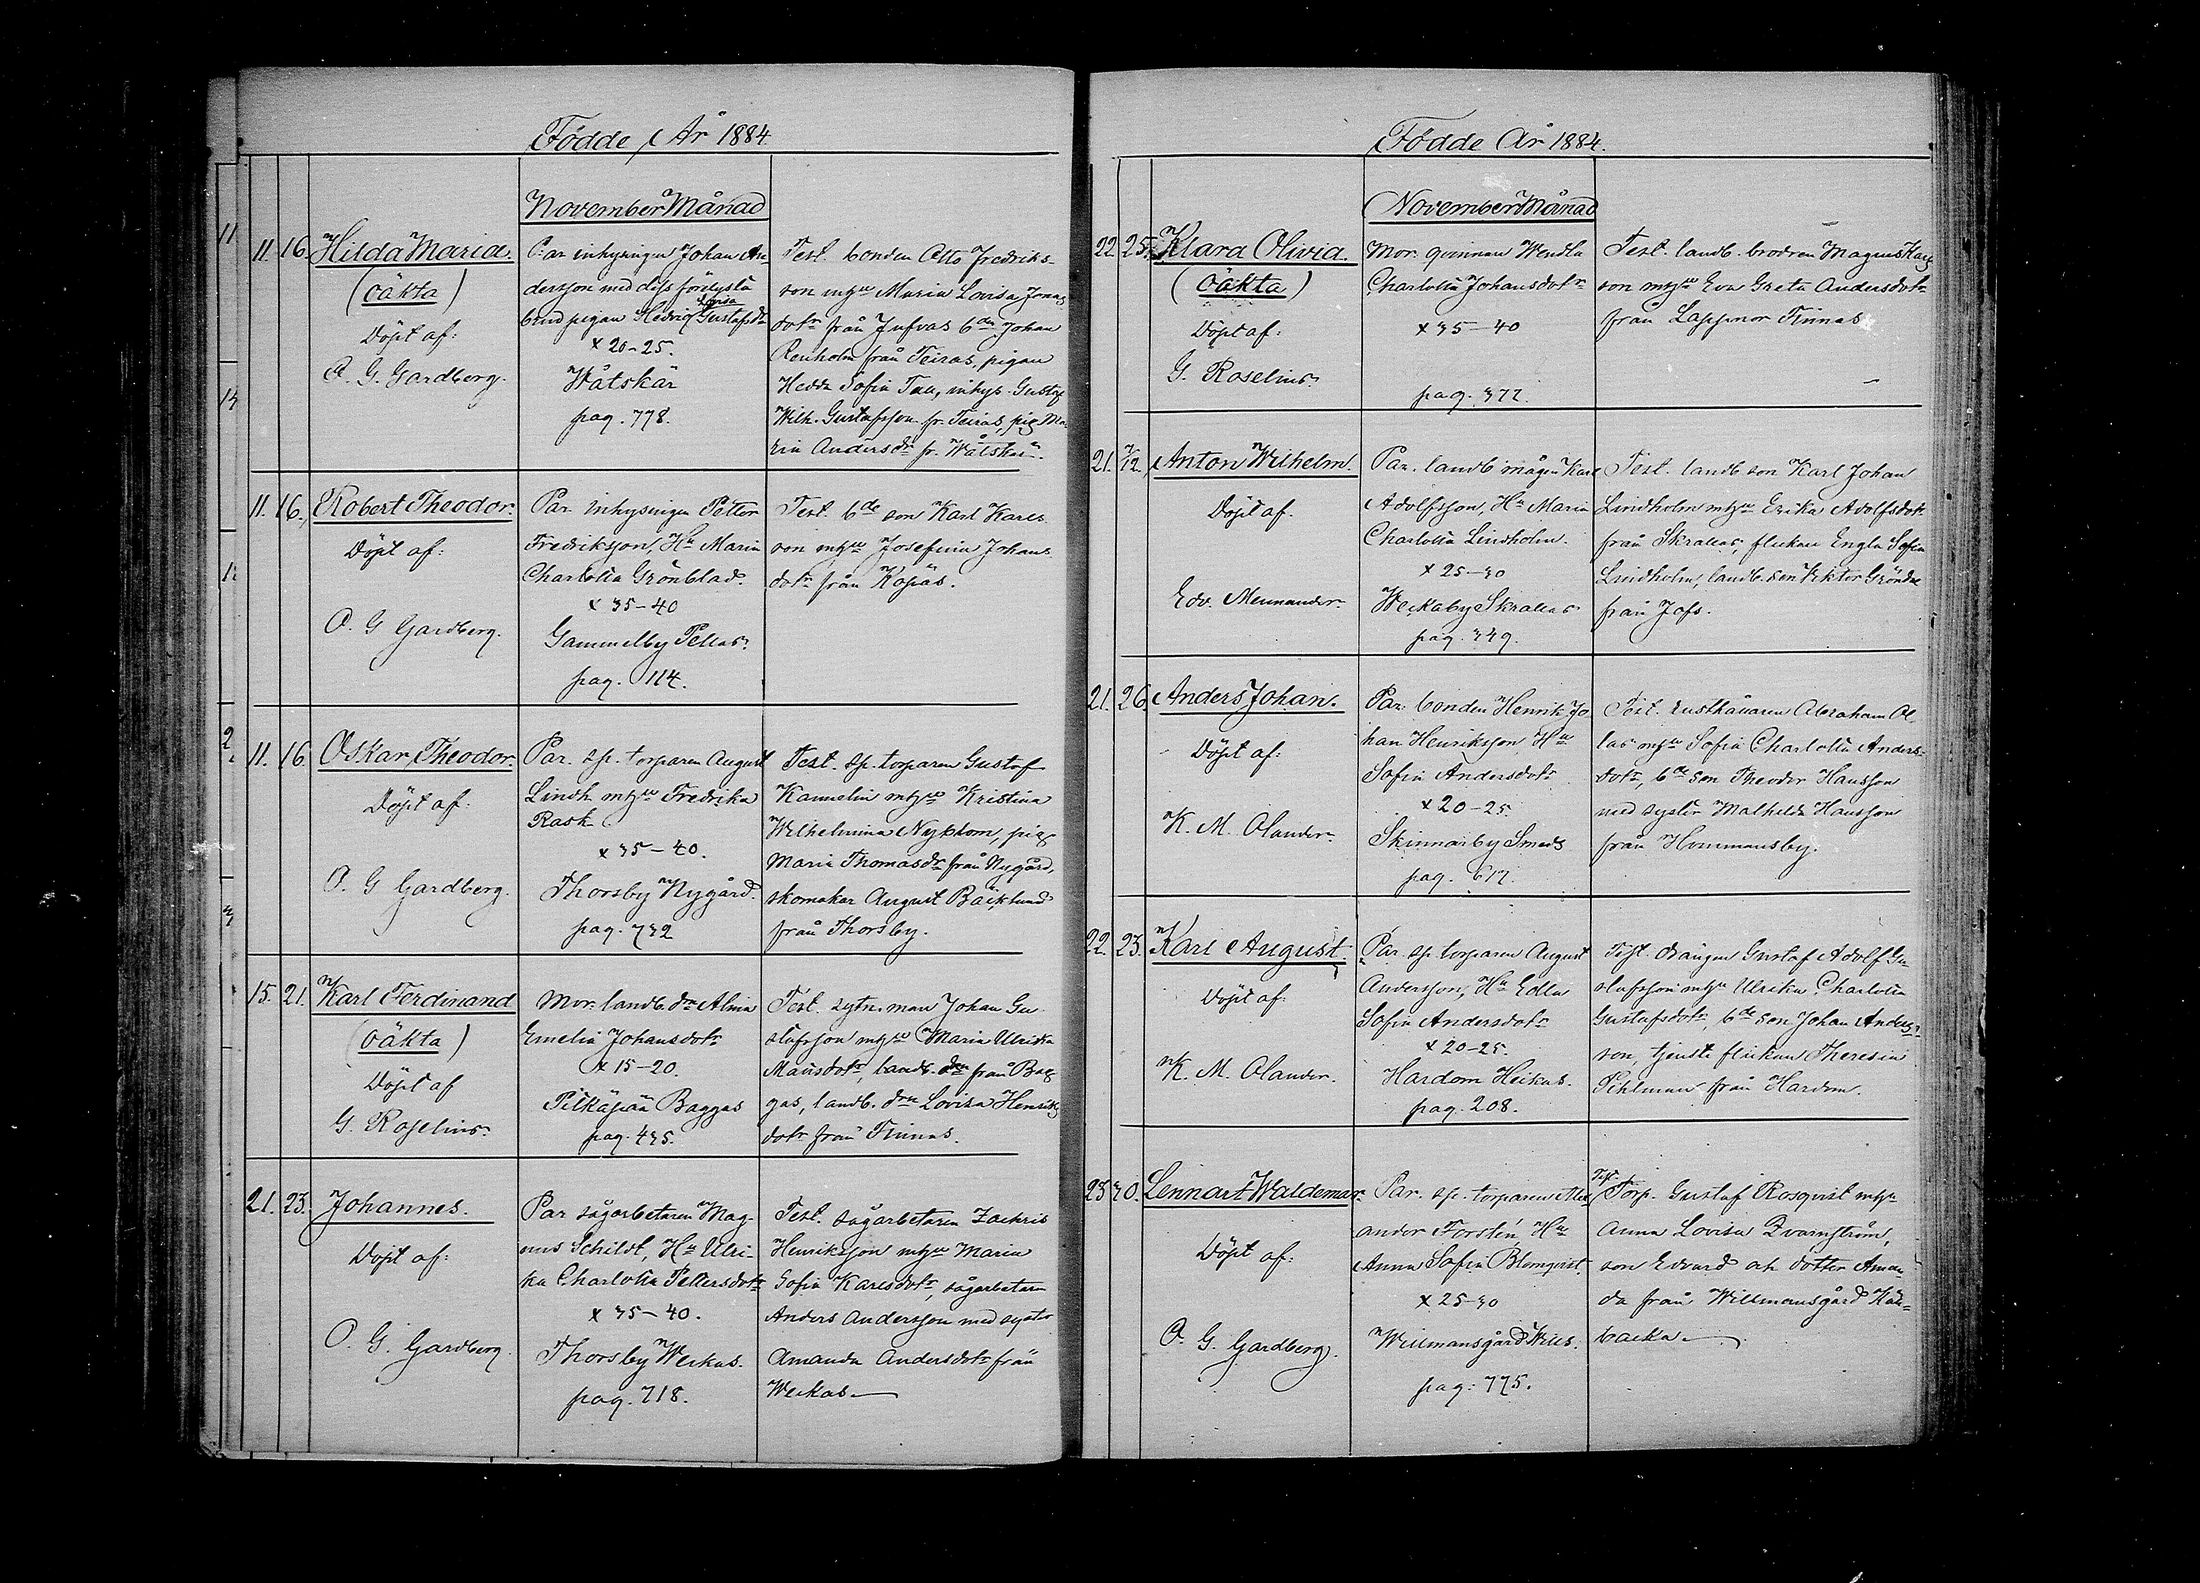 Födde År 1884.
November Månad
11. 16. Hilda Maria.
(oäkta)
Döpt af:
A. G. Gardberg.
Par inhysingen Johan An-
dersson med dess förelysta
Lovisa
brud pigan Hedvig Gustafsdr
x 20-25.
Wåtskär
pag. 778.
Test. bonden Otto Fredriks-
son mhu Maria Lovisa Jonas
dotr från Jufvas bden Johan
Renholm från Teiras, pigan
Hedda Sofia Tau, inhys. Gustaf
Wilh. Gustafsson fr. Teiras, pig Ma-
ria Andersdr fr. Wåtskär.
11. 16. Robert Theodor.
Döpt af:
A. G Gardberg.
Par. inhysingen Petter
Fredriksson, Hu Maria
Charlotta Grönblad.
x 35-40
Gammelby Pellas.
pag. 114.
Test. bde son Karl Karls
son mhu Josefina Johans
dotr från Kopäs.
11. 16. Oskar Theodor.
Döpt af:
A. G Gardberg.
Par. sp. torparen August
Lindh mhu Fredrika
Rask
x 35-40.
Thorsby Nygård.
pag. 732
Test. sp. torparen Gustaf
Kannelin mhu Kristina
Wilhelmina Nyblom, pig
Maria Thomasdr från Nygård,
skomakar August Bäcklund
från Thorsby.
15. 21. Karl Ferdinand
(oäkta)
Döpt af
G. Roselius.
Mor: landb. dr Alma
Emelia Johansdotr
x 15-20.
Pitkäpää Baggas
pag. 435.
Test. sytn. man Johan Gu-
stafsson mhu Maria Ulrika
Månsdotr, landb. från Bag
gas, landb. drn Lovisa Henriks
dotr från Finnas.
21. 23. Johannes.
Döpt af:
A. G. Gardberg.
Par sågarbetaren Mag-
nus Schildt, Hu Ulri-
ka Charlotta Pettersdotr
x 35-40.
Thorsby Weckas.
pag. 718.
Test. sågarbetaren Zachris
Henriksson mhu Maria
Sofia Karlsdotr, sågarbetaren
Anders Andersson med syster
Amanda Andersdotr från
Weckas
Födde År 1884.
November Månad
22. 25. Klara Olivia.
(oäkta)
Döpt af:
G. Roselius.
Mor: qvinnan Wendla
Charlotta Johansdotr
x 35-40
pag. 377.
Test. landb. brodren Magnus Karls
son mhu Eva Greta Andersdotr
från Lappnor Finnas
21. 7/12. Anton Wilhelm.
Döpt af.
Edv. Mennander.
Par. landb mågen Karl
Adolfsson, Hu Maria
Charlotta Lindholm.
x 25-30
Weckaby Skrallas
pag. 349.
Test. landb son Karl Johan
Lindholm mhu Erika Adolfsdotr
från Skrallas, flickan Engla Sofia
Lindholm, landb. son Viktor
från Jofs.
21. 26. Anders Johan.
Döpt af:
K. M. Olander
Par. bonden Henrik Jo
han Henriksson Hu
Sofia Andersdotr
x 20-25.
Skinnarby Smeds
pag. 617.
Test. rusthållaren Abraham Ol
las mhu Sofia Charlotta Anders
dotr, bde son Theodor Hansson
med syster Mathilda Hansson
från Hommansby.
22. 23. Karl August.
Döpt af:
K. M. Olander.
Par. sp. torparen August
Andersson, Hu Edla
Sofia Andersdotr
x 20-25.
Hardom Heikas.
pag. 208.
Test. drängen Gustaf Adolf Gu-
stafsson mhu Ulrika Charlotta
Gustafsdotr, bde son Johan Anders-
son, tjenste flickan Theresia
Pihlman från Hardom.
23 30. Lennart Waldemar.
Döpt af:
A. G. Gardberg.
Par. sp. torparen Alex
ander Forstén, Hu
Anna Sofia Blomqvist.
x 25-30
Willmansgård Wiks.
pag. 775.
Test.
Torp. Gustaf Rosqvist mhu
Anna Lovisa Qvarnström,
son Edvard och dotter Aman-
da från Willmansgård Kär-
backa